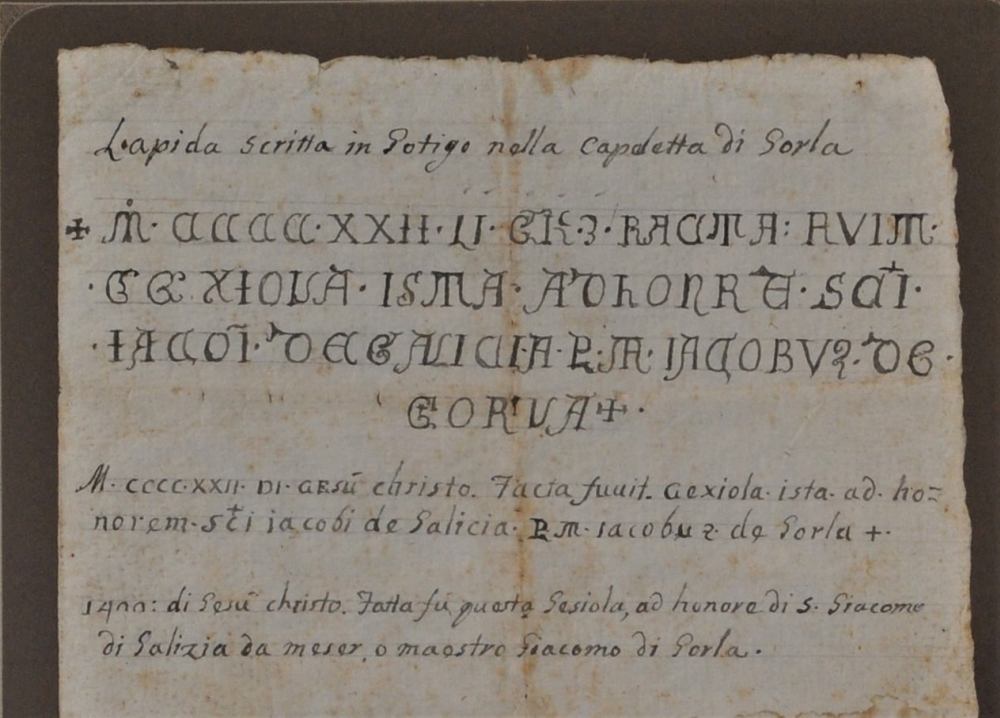 Lapida scritta in Gotigo nella Capeletta di Gorla
✠ M· CCCC·XXII·
·GEXIOLA· ISMA· AD hONRE· SCTI·
·IACOI· DE GALICIA·P·M·IACOBVꝫ·DE·
GORLA✠·
M· CCCC·XXII· DI· GESŪ christo. Facta fuuit. Gexiola· ista· ad· ho=
norem·Scti iacobi de Galicia· P.M· iacobuz· de Gorla +·
di Gesū christo. Fatta fu questa Gesiola, ad honore di S. Giacomo
di Galizia da meser, o maestro Giacomo di Gorla.